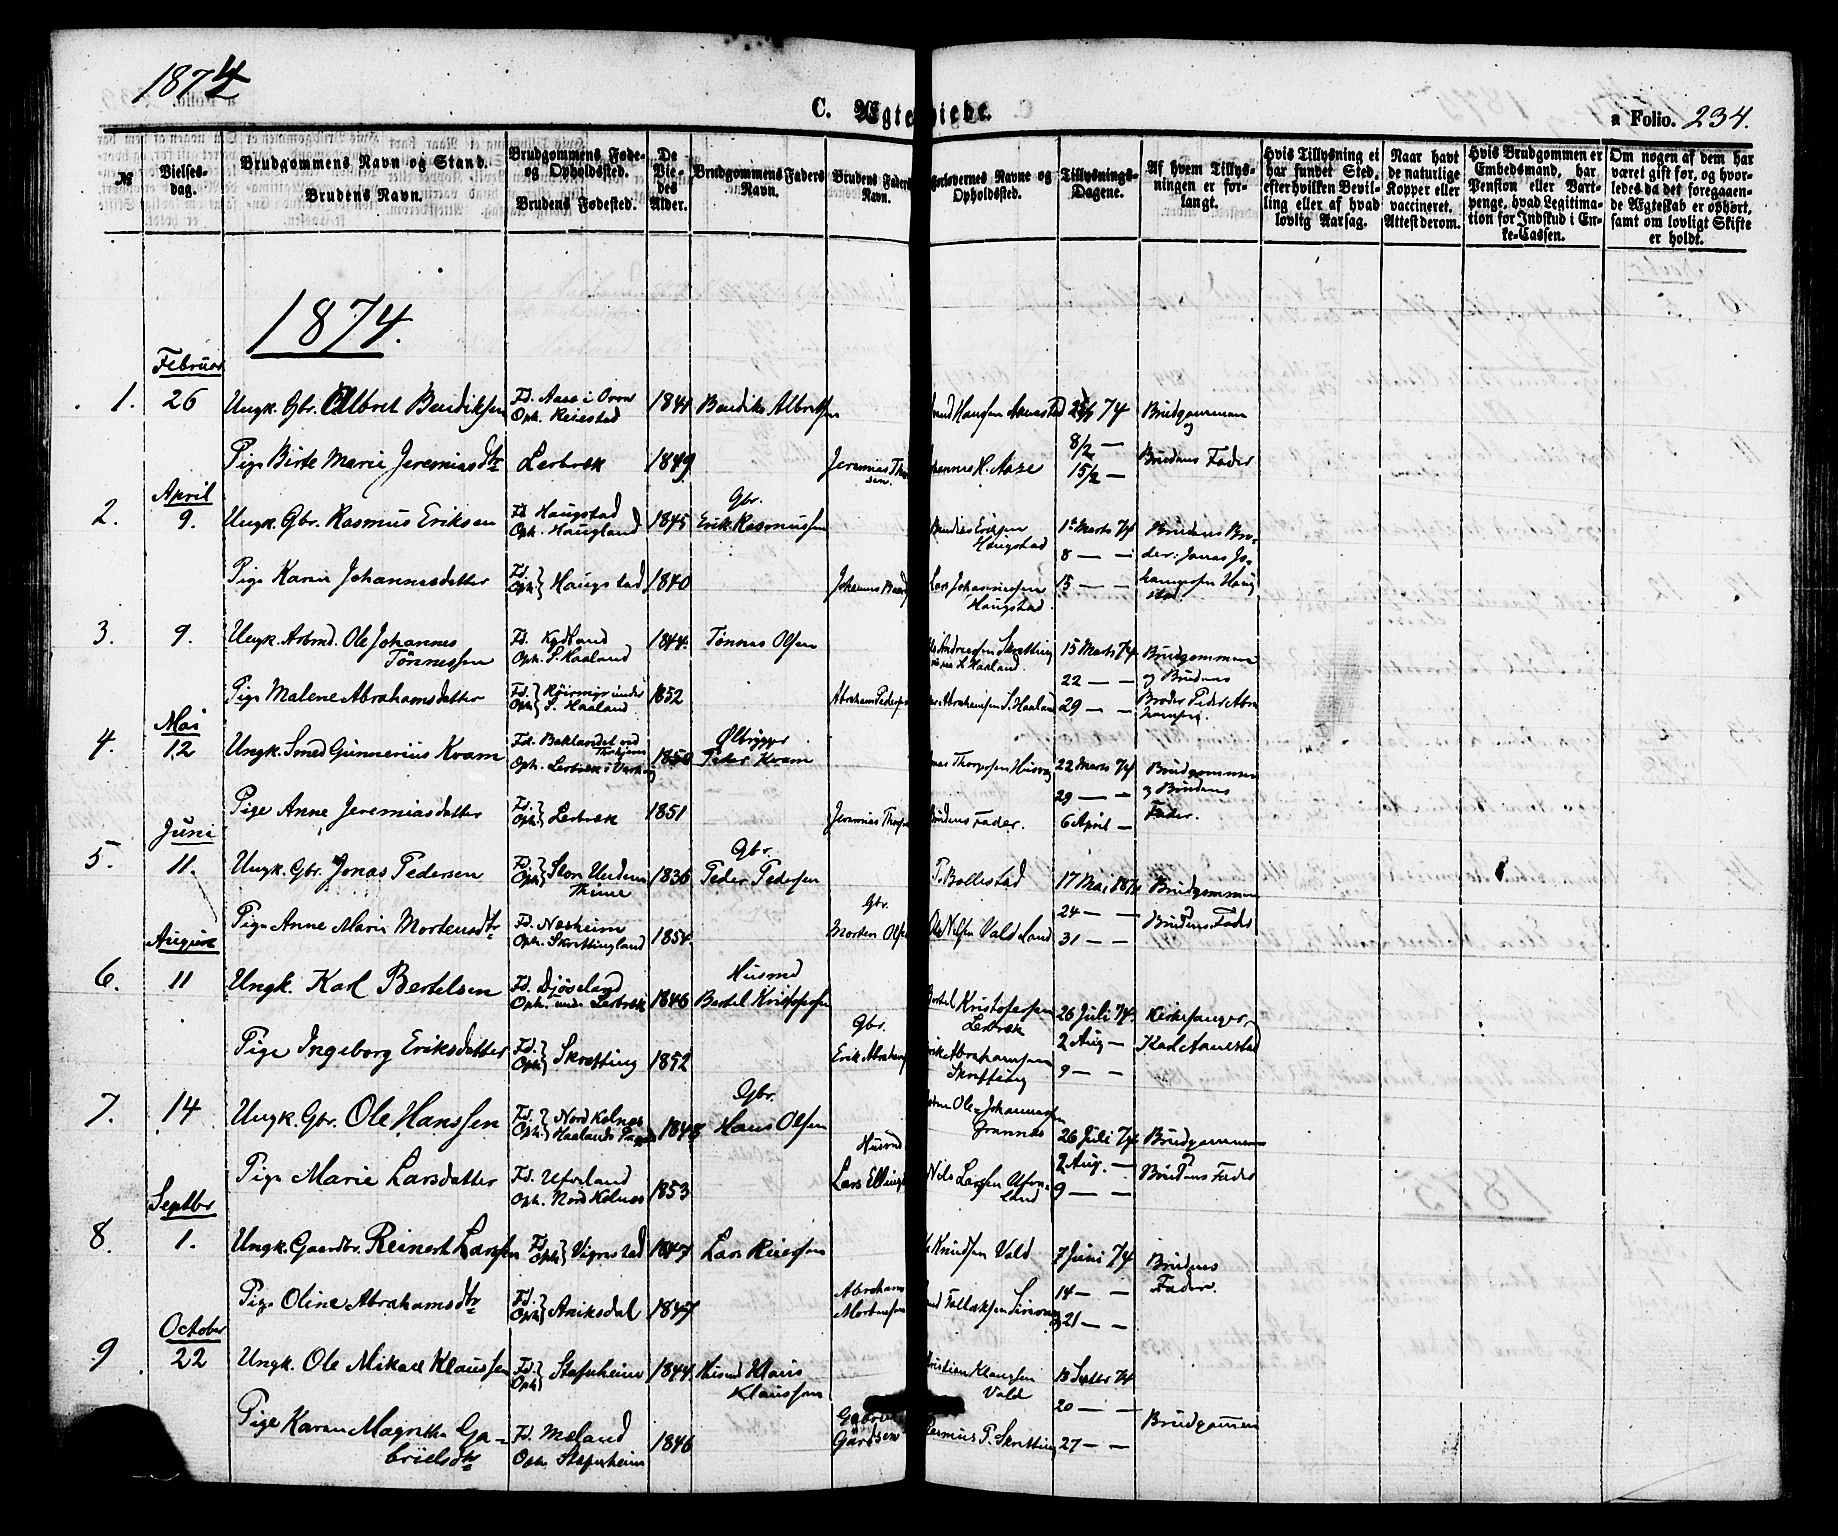 1874
C. Ægteviede.
a Folio. 234.
№
Vielses-
dag.
Brudgommens Navn og Stand.
Brudens Navn.
Brudgommens Føde-
og Opholdssted.
Brudens Fødested.
De
Vie-
des
Alder.
Brudgommens Faders
Navn.
Brudens Faders
Navn.
gerlovernes Navne og
Opholdssted.
Tillysnings-
Dagene.
Af hvem Tillys-
ningen er for-
langt.
Hvis Tillysning ei
har fundet Sted,
efter hvilken Bevil-
ling eller af hvad
lovlig Aarsag.
Naar havt
de naturlige
Kopper eller
vaccineret.
Attest derom.
Hvis Brudgommen er
Embedsmand, har
Pension eller Vart-
penge, hvad Legitima-
tion for Indskud i En-
ke-Cassen.
Om nogen af dem har
været gift før, og hvor-
ledes da det foregaaen-
de Ægteskab er ophørt,
samt om lovligt Skifte
er holdt.
1874.
Februar
1. 26 Ungk. Gbr. Albret Bendiksen Fd. Aase i Ovre Oph. Reiestad 1841 Bendiks Albretsen Hansen Aanestad 74 Brudgommen
og
Pige Birte Marie Jeremiasdtr Lerbrek 1849 Jeremias Thorsen. H. Aase 8/2 — 15/2 — Brudens Fader
April
2. 9. Ungk. Gbr. Rasmus Eriksen Fd. Haugstad Oph. Haugland 1845 Gbr. Erik Rasmussen Eriksen Haugstad 1ste Marts 74 8 — — Brudens Bro-
der: Jonas Jo-
Pige Karen Johannesdatter Fd. Oph. } Haugstad 1840 Johannes Lars Johannessen Haugstad. 15 — — hannessen Haug
stad.
3. 9. Ungk. Arbmd. Ole Johannes
Tönnessen Fd. Kydland Oph. S. Haaland 1844. Tönnes Olsen Andreassen Skretting S. Haaland. 15 Marts 74 22 — — Brudgommen
og Brudens
Pige Malene Abrahamsdatter Fd. Oph. } under S. Haaland 1852 Abraham Pedersen Abrahamsen S. Haaland 29 — — Broder Peder Abra
hamsen.
Mai
4. 12 Ungk. Smed Gunnerius Kvam Fd. Baklandet ved Oph. Lerbrek i 1850 Ølbrygger Peder Kvam Thorsen 22 Marts 74 29 — — Brudgommen
og Brudens
Pige Anne Jeremiasdatter Fd. Oph. } Lerbrek 1851 Jeremias Brudens Fader. 6 April — Fader.
Juni
5. 11. Ungk. Gbr. Jonas Pedersen Fd. Oph. } Stor Undem Thime 1836 Gbr. Peder Pedersen P. Bollestad 17 Mai 1874 24 — — Brudgommen
Pige Anne Marie Mortensdtr Fd. Nesheim Oph. Skrettingland 1854. Gbr. Morten Olsen Nilsen Valdeland 31 — — Brudens Fader
August
6. 11 Ungk. Karl Bertelsen Fd. Djöveland Oph. under Lerbrek 1846 Husmd Bertel Kristofersen Bertel Kristofersen Lerbrek 26 Juli 74. 2 Aug — Kirkesanger
Karl Aanestad
Pige Ingeborg Eriksdatter Fd. Oph. } Skretting 1852 Gbr. Erik Abrahams Erik Abrahamsen Skretting 9 — —
7. 14 Ungk. Gbr. Ole Hanssen Fd. Oph. } Nord Kolnes Haalands 1848 Gbr. Hans Olsen Ole Johannessen Grannes 26 Juli 74. 2 Aug. — Brudgommen
Pige Marie Larsdatter Fd. Ueland Oph. Nord Kolnes 1853 Husmd Lars Nils Larsen land 9 — — Brudens Fader
Septbr
8. 1. Ungk. Gaardbr. Reinert Larssen Fd. Oph. } Vigrestad 1847 Lars Reiersen Knudsen Vald 7 Juni 74 14 — — Brudens
Fader.
Pige Oline Abrahamsdtr Fd. Oph. } Aniksdal 1847 Abraham Mortensen 21 — —
October
9 22 Ungk. Ole Mikael Klaussen Fd. Oph } Stafnheim 1844. Husmd Klaus Klaussen Kristian Klaussen Vald 13 Septbr 74 20 — —
Pige Karen Magrethe Ga-
brielsdtr Fd. Meland Oph. Stafnheim 1846 Gabriel Gardsen Rasmus P. Skretting 27 — — Brudgommen